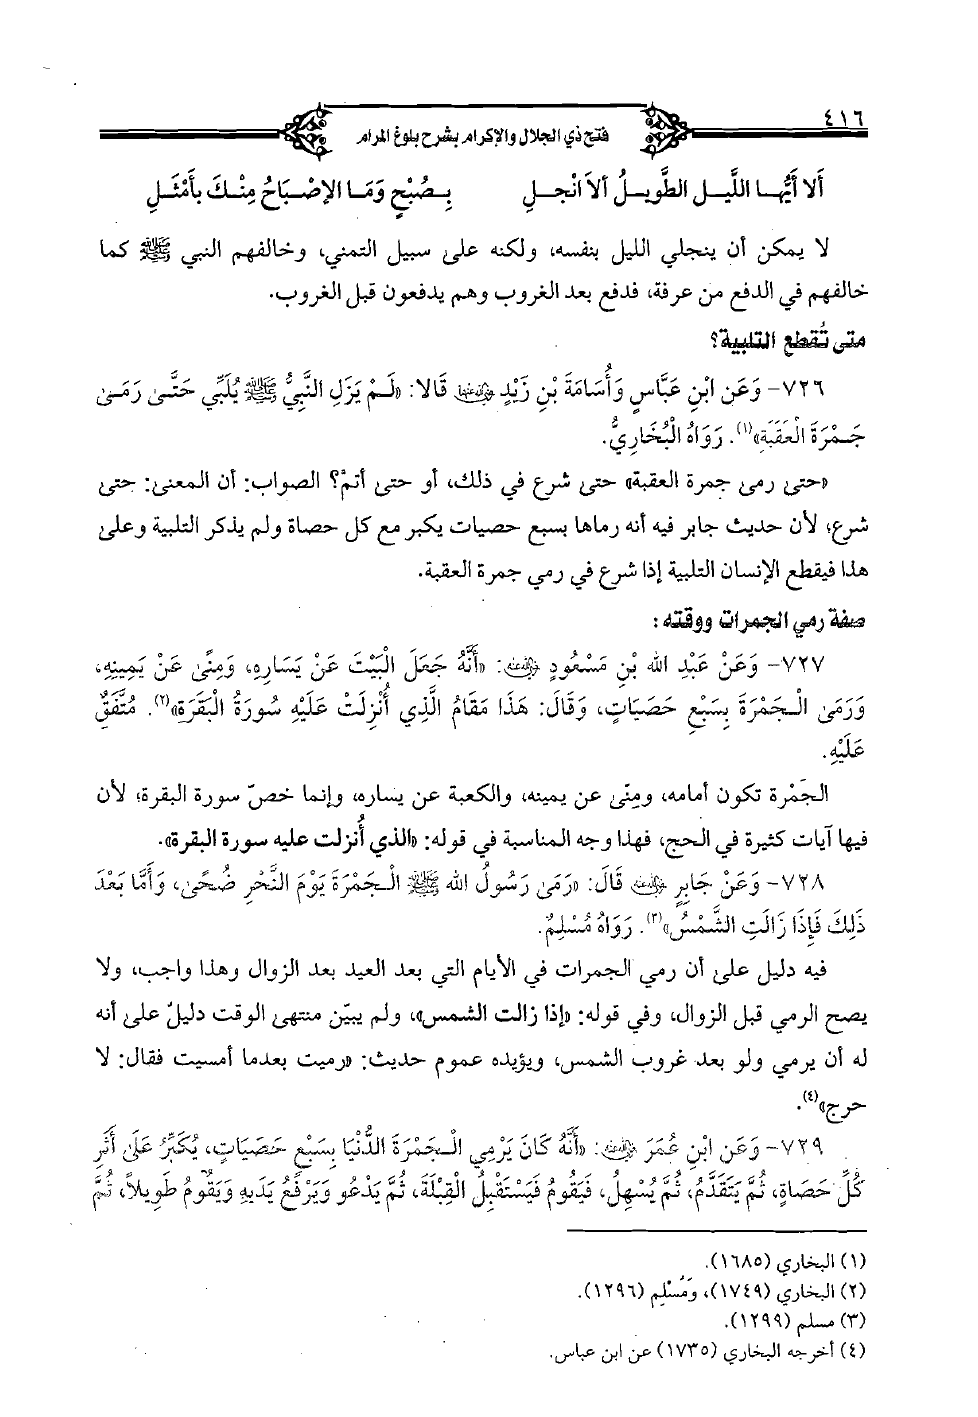 ٤١٦
فتح ذي الجلال والإكرام بشرح بلوغ المرام
ألا أَيُّها اللَّيل الطَّويلُ ألاَ انْجلِ بصُبْحٍ وَمَا الإصْبَاحُ مِنْكَ بأَمْثَلِ
لا يمكن أن ينجلي الليل بنفسه، ولكنه على سبيل التمني، وخالفهم النبي ﷺ كما
خالفهم في الدفع من عرفة، فدفع بعد الغروب وهم يدفعون قبل الغروب.
متى تُقطع التلبية؟
٧٢٦- وَعَن ابْنِ عَبَّاسٍ وَأُسَامَةَ بْنِ زَيْدٍ رضي الله عنهما قَالا: «لَمْ يَزَلِ النَّبِيُّ ﷺ يُلَبِّي حَتَّى رَمَى
جَمْرَةَ الْعَقَبَةِ»(١). رَوَاهُ الْبُخَارِيُّ.
«حتى رمى جمرة العقبة» حتى شرع في ذلك، أو حتى أتمَّ؟ الصواب: أن المعنى: حتى
شرع؛ لأن حديث جابر فيه أنه رماها بسبع حصيات يكبر مع كل حصاة ولم يذكر التلبية وعلى
هذا فيقطع الإنسان التلبية إذا شرع في رمي جمرة العقبة.
صفة رمي الجمرات ووقته:
٧٢٧- وَعَنْ عَبْدِ الله بْنِ مَسْعُودٍ رضي الله عنه: «أَنَّهُ جَعَلَ الْبَيْتَ عَنْ يَسَارِهِ، وَمِنًى عَنْ يَمِينِهِ،
وَرَمَى الْجَمْرَةَ بِسَبْعِ حَصَيَاتٍ، وَقَالَ: هَذَا مَقَامُ الَّذِي أُنْزِلَتْ عَلَيْهِ سُورَةُ الْبَقَرَةِ»(٢). مُتَّفَقٌ
عَلَيْهِ.
الجَمْرة تكون أمامه، ومِنًى عن يمينه، والكعبة عن يساره، وإنما خصّ سورة البقرة؛ لأن
فيها آيات كثيرة في الحج، فهذا وجه المناسبة في قوله: «الذي أُنزلت عليه سورة البقرة».
٧٢٨- وَعَنْ جَابِرٍ رضي الله عنه قَالَ: «رَمَى رَسُولُ الله ﷺ الْجَمْرَةَ يَوْمَ النَّحْرِ ضُحًى، وَأَمَّا بَعْدَ
ذَلِكَ فَإِذَا زَالَتِ الشَّمْسُ»(٣). رَوَاهُ مُسْلِمٌ.
فيه دليل على أن رمي الجمرات في الأيام التي بعد العيد بعد الزوال وهذا واجب، ولا
يصح الرمي قبل الزوال، وفي قوله: «إذا زالت الشمس»، ولم يبيّن منتهى الوقت دليلٌ على أنه
له أن يرمي ولو بعد غروب الشمس، ويؤيده عموم حديث: «رميت بعدما أمسيت فقال: لا
حرج»(٤).
٧٢٩- وَعَنِ ابْنِ عُمَرَ رضي الله عنهما: «أَنَّهُ كَانَ يَرْمِي الْجَمْرَةَ الدُّنْيَا بِسَبْعِ حَصَيَاتٍ، يُكَبِّرُ عَلَى أَثَرِ
كُلِّ حَصَاةٍ، ثُمَّ يَتَقَدَّمُ، ثُمَّ يُسْهِلُ، فَيَقُومُ فَيَسْتَقْبِلُ الْقِبْلَةَ، ثُمَّ يَدْعُو وَيَرْفَعُ يَدَيهِ وَيَقُومُ طَوِيلاً، ثُمَّ
(١) البخاري (١٦٨٥).
(٢) البخاري (١٧٤٩)، وَمُسْلِم (١٢٩٦).
(٣) مسلم (١٢٩٩).
(٤) أخرجه البخاري (١٧٣٥) عن ابن عباس.